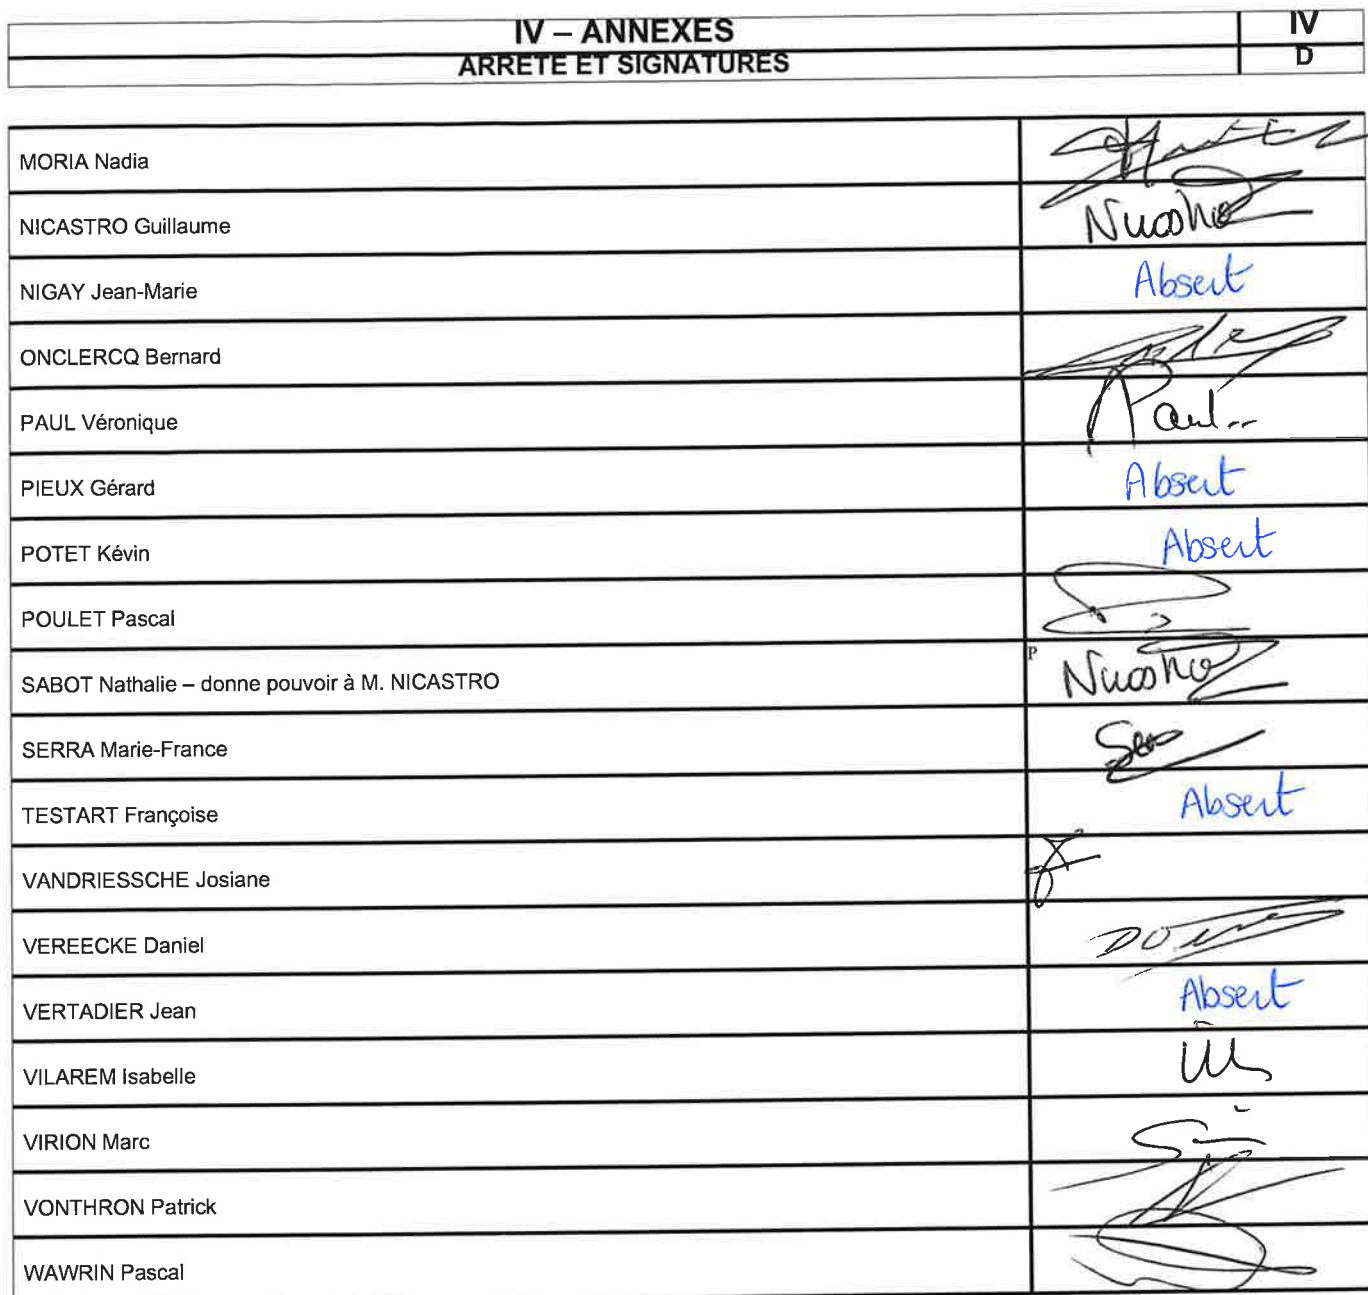 IV – ANNEXES IV
ARRETE ET SIGNATURES D
MORIA Nadia
NICASTRO Guillaume
NIGAY Jean-Marie Absent
ONCLERCQ Bernard
PAUL Véronique Paul
PIEUX Gérard Absent
POTET Kévin Absent
POULET Pascal
SABOT Nathalie – donne pouvoir à M. NICASTRO P
SERRA Marie-France
TESTART Françoise Absent
VANDRIESSCHE Josiane
VEREECKE Daniel
VERTADIER Jean Absent
VILAREM Isabelle
VIRION Marc
VONTHRON Patrick
WAWRIN Pascal